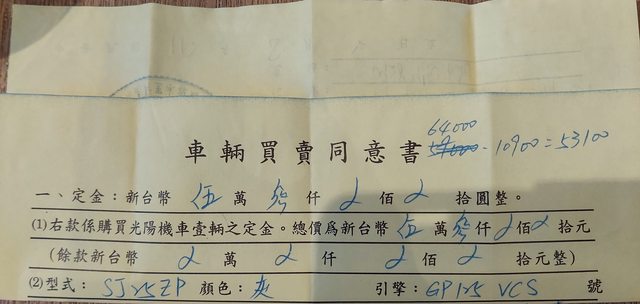 64000
車輛買賣同意書 59000 - 10900 = 53100
一、定金：新台幣 伍 萬 參 仟 0 佰 0 拾圓整。
(1)右款係購買光陽機車壹輛之定金。總價為新台幣 伍 萬 參 仟 0 佰 0 拾元
(餘款新台幣 0 萬 0 仟 0 佰 0 拾元整)
(2)型式： SJ25ZP 顏色：灰 引擎： GP125 VCS 號